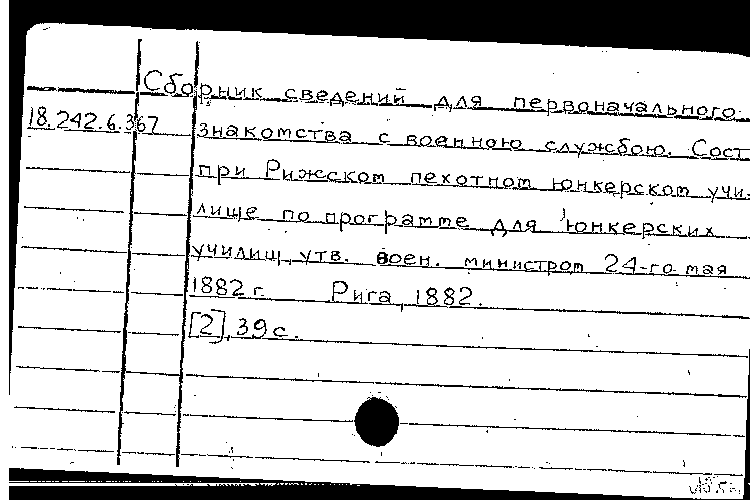 Сборник сведений для первоначального
18.242.6.367
знакомства с военною службою. Сост.
при Рижском пехотном юнкерском учи-
лище по программе для юнкерских
училищ, утв. воен. министром 24-го мая
1882 г. Рига, 1882.
[2], 39 с.